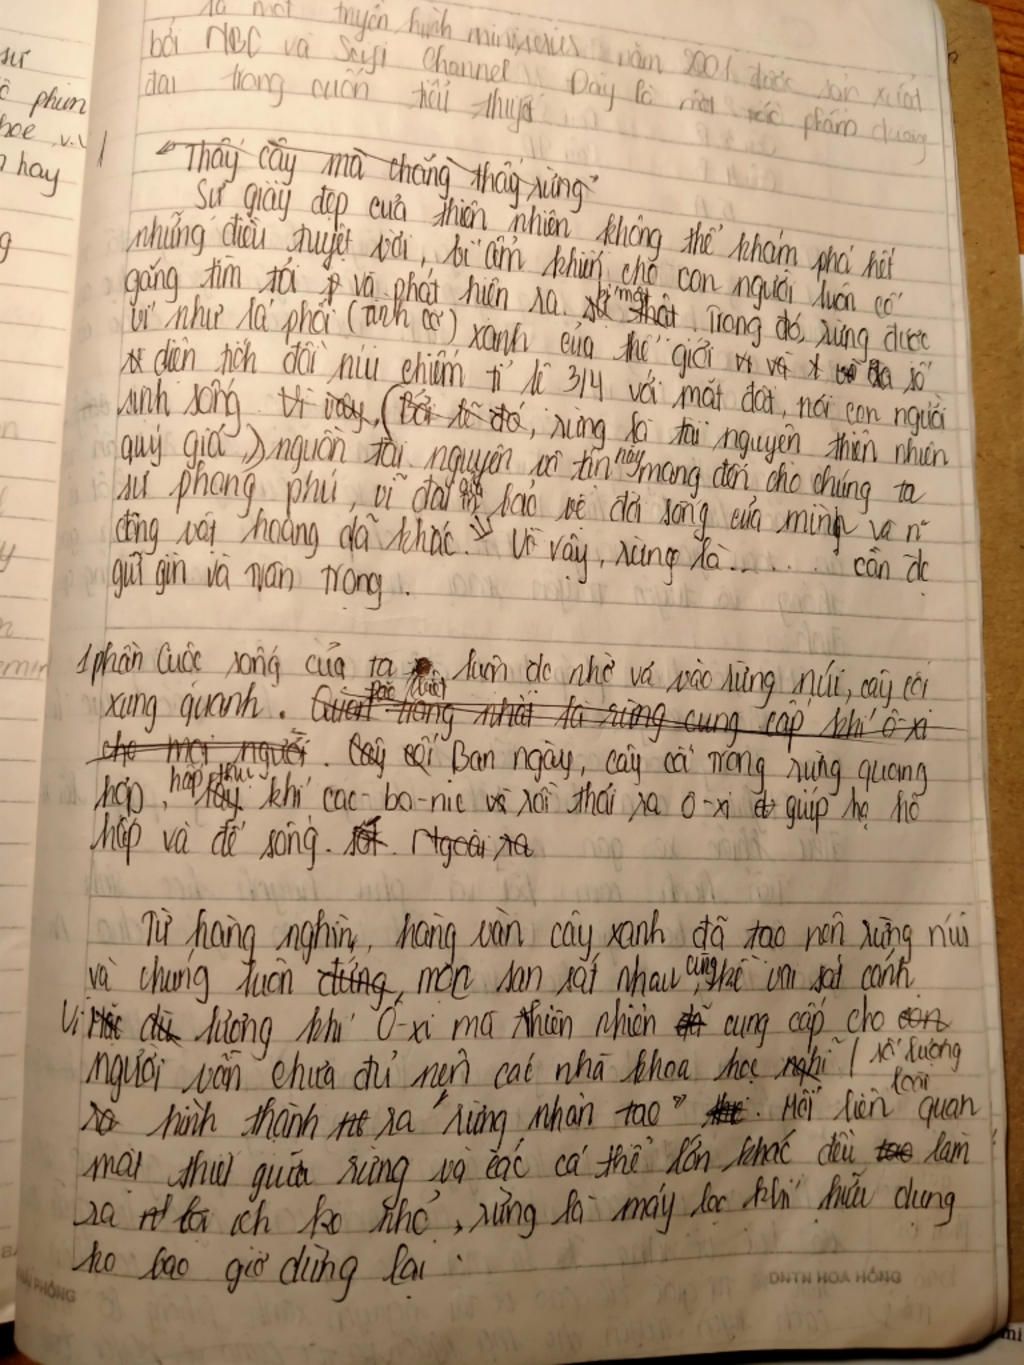 là một truyền hình miniseries năm 2001 được sản xuất
bởi NBC và Scifi Channel. Đây là một tác phẩm đương
đại trong cuốn tiểu thuyết
sư
phim
hoe v.v
hay
"Thấy cây mà chẳng thấy rừng"
Sự giày đẹp của thiên nhiên không thể khám phá hết
những điều tuyệt vời, bí ẩm khiến cho con người luôn cố
gắng tìm tòi và phát hiện ra bí mật thật. Trong đó, rừng được
ví như lá phổi (tính từ) xanh của thế giới và đa số
diện tích đồi núi chiếm tỉ lệ 3/4 với mặt đất, nơi con người
sinh sống. Vì vậy, (Bởi lẽ đó, rừng là tài nguyên thiên nhiên
quý giá,) nguồn tài nguyên vô tận này mang đến cho chúng ta
sự phong phú, vĩ đại bảo vệ đời sống của mình và n~
động vật hoang dã khác. Vì vậy, rừng là ....... cần dc
giữ gìn và trân trọng.
1 phần Cuộc sống của ta luôn dc nhờ vả vào rừng núi, cây cối
xung quanh. Quan trọng nhất là rừng cung cấp khí ô-xi
cho mọi người. Cây cối Ban ngày, cây cối trong rừng quang
hợp, hấp thụ khí cac-bo-nic rồi thải ra ô-xi giúp họ hô
hấp và để sống. Ngoài ra
Từ hàng nghìn, hàng vàn cây xanh đã tạo nên rừng núi
và chúng luôn đứng, mọc san sát nhau, cũng kề vai sát cánh
Vì Mặc dù lượng khí O-xi mà thiên nhiên đã cung cấp cho con
người vẫn chưa đủ nên các nhà khoa học nghĩ / số lượng
ra hình thành ra "rừng nhân tạo". Mối liên quan
loài
mật thiết giữa rừng và các cá thể lớn khác đều tạo làm
ra lợi ích ko nhỏ, rừng là máy lọc khí hữu dụng
ko bao giờ dừng lại.
DNTN HOA HỒNG
PHÒNG